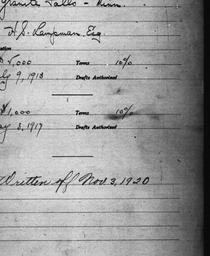 Granite Falls - Minn.
H.S. Lanpman. Esq
5,000 Terms 10%
9, 1913 Drafts Authorized
$1,000 Terms 10%
3, 1917 Drafts Authorized
Written off Nov 3, 1920